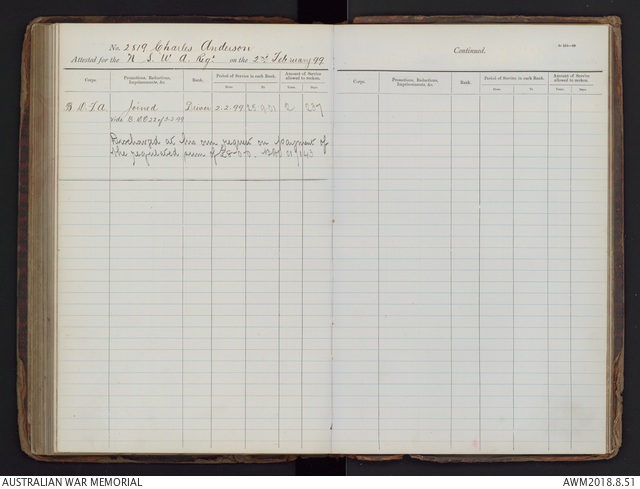 No. 2819 Charles Anderson
Attested for the N. S. W. A. Regt. on the 2nd February 99
Corps. Promotions, Reductions, Imprisonments, &c. Rank. Period of Service in each Rank. Amount of Service allowed to reckon.
From. To. Years. Days.
Joined Driver 2-2-99 25 9 01 2 237
Vide
Discharged at his own request on payment of
the regulated sum of
Continued.
Corps. Promotions, Reductions, Imprisonments, &c. Rank. Period of Service in each Rank. Amount of Service allowed to reckon.
From. To. Years. Days.
AUSTRALIAN WAR MEMORIAL
AWM2018.8.51